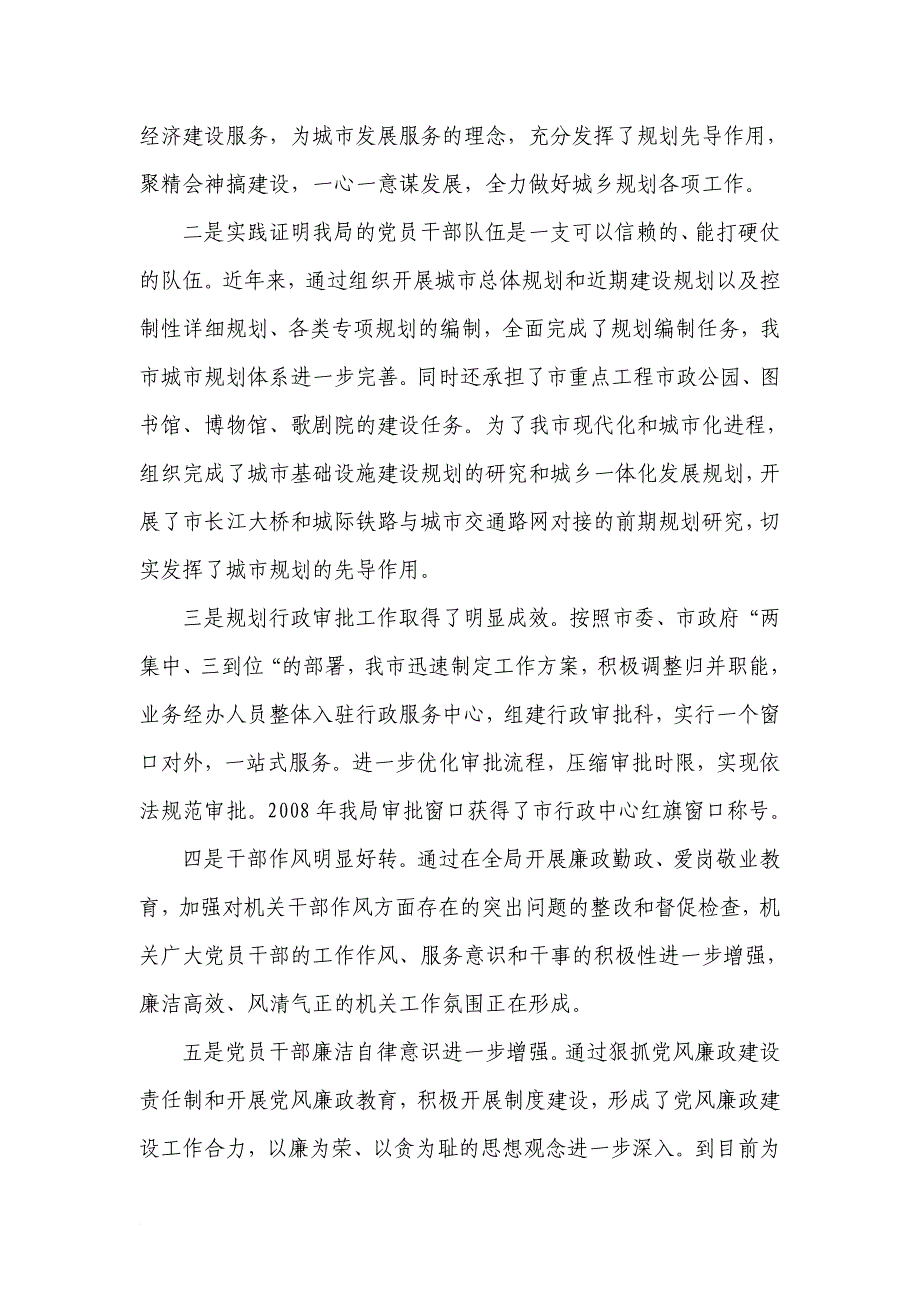 经济建设服务，为城市发展服务的理念，充分发挥了规划先导作用，
聚精会神搞建设，一心一意谋发展，全力做好城乡规划各项工作。
二是实践证明我局的党员干部队伍是一支可以信赖的、能打硬仗
的队伍。近年来，通过组织开展城市总体规划和近期建设规划以及控
制性详细规划、各类专项规划的编制，全面完成了规划编制任务，我
市城市规划体系进一步完善。同时还承担了市重点工程市政公园、图
书馆、博物馆、歌剧院的建设任务。为了我市现代化和城市化进程，
组织完成了城市基础设施建设规划的研究和城乡一体化发展规划，开
展了市长江大桥和城际铁路与城市交通路网对接的前期规划研究，切
实发挥了城市规划的先导作用。
三是规划行政审批工作取得了明显成效。按照市委、市政府“两
集中、三到位“的部署，我市迅速制定工作方案，积极调整归并职能，
业务经办人员整体入驻行政服务中心，组建行政审批科，实行一个窗
口对外，一站式服务。进一步优化审批流程，压缩审批时限，实现依
法规范审批。2008年我局审批窗口获得了市行政中心红旗窗口称号。
四是干部作风明显好转。通过在全局开展廉政勤政、爱岗敬业教
育，加强对机关干部作风方面存在的突出问题的整改和督促检查，机
关广大党员干部的工作作风、服务意识和干事的积极性进一步增强，
廉洁高效、风清气正的机关工作氛围正在形成。
五是党员干部廉洁自律意识进一步增强。通过狠抓党风廉政建设
责任制和开展党风廉政教育，积极开展制度建设，形成了党风廉政建
设工作合力，以廉为荣、以贪为耻的思想观念进一步深入。到目前为